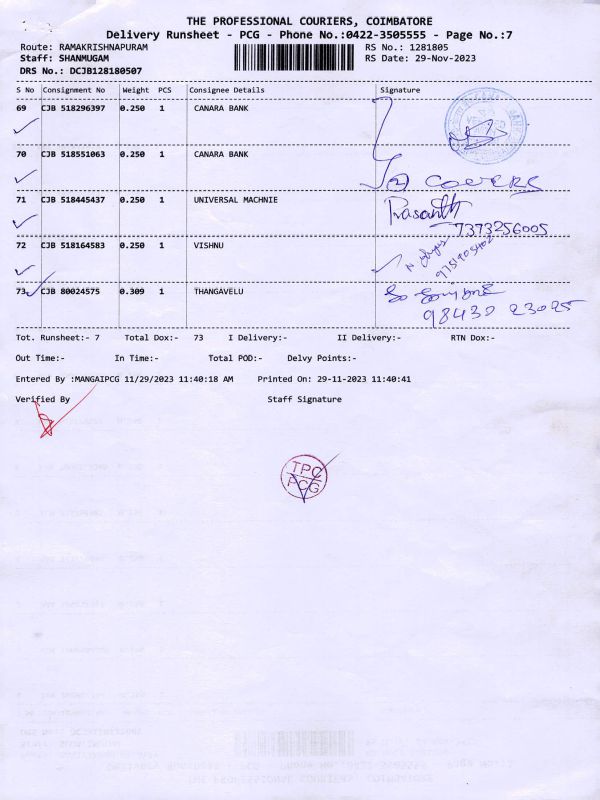 THE PROFESSIONAL COURIERS, COIMBATORE
Delivery Runsheet - PCG - Phone No.:0422-3505555 - Page No.:7
Route: RAMAKRISHNAPURAM RS No.: 1281805
Staff: SHANMUGAM RS Date: 29-Nov-2023
DRS No.: DCJB128180507
S No Consignment No Weight PCS Consignee Details Signature
69 CJB 518296397 0.250 1 CANARA BANK
70 CJB 518551063 0.250 1 CANARA BANK
(2) COVERS
71 CJB 518445437 0.250 1 UNIVERSAL MACHNIE Prasanth
7373256005
72 CJB 518164583 0.250 1 VISHNU
73 CJB 80024575 0.309 1 THANGAVELU
98430 23025
Tot. Runsheet:- 7 Total Dox:- 73 I Delivery:- II Delivery:- RTN Dox:-
Out Time:- In Time:- Total POD:- Delvy Points:-
Entered By :MANGAIPCG 11/29/2023 11:40:18 AM Printed On: 29-11-2023 11:40:41
Verified By Staff Signature
TPC
PCG